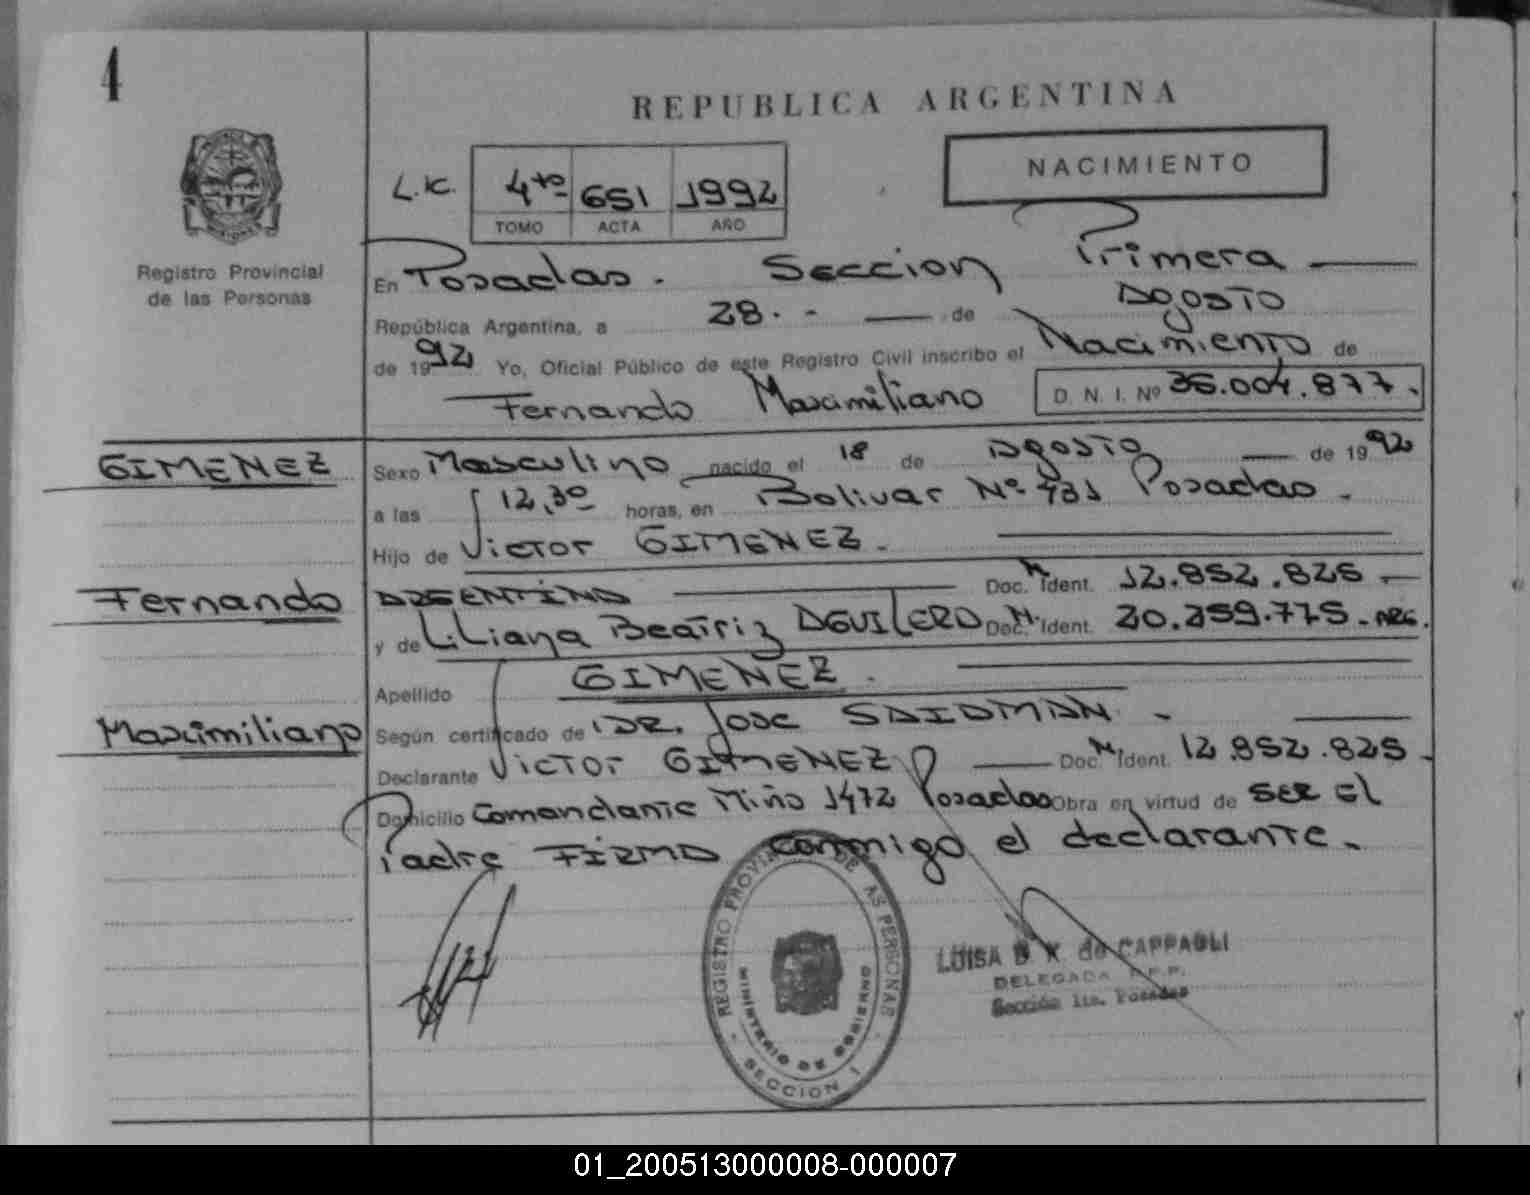 4
REPUBLICA ARGENTINA
NACIMIENTO
L.C. 4to 651 1992
TOMO ACTA AÑO
Registro Provincial
de las Personas
En Posadas. Seccion Primera
República Argentina, a 28.- de Agosto
de 1992 Yo, Oficial Público de este Registro Civil inscribo el Nacimiento de
Fernando Maximiliano D. N. I. Nº 36.004.877.
GIMENEZ
Sexo Masculino nacido el 18 de Agosto de 1992
a las 12,30 horas, en Bolivar Nº 431 Posadas.
Hijo de Victor GIMENEZ.
Fernando
ARGENTINO Doc. N. Ident. 12.852.825
y de Liliana Beatriz AGUILERO Doc. N. Ident. 20.259.775 - ARG.
Apellido GIMENEZ.
Maximiliano
Según certificado de DR. Jose SAIDMAN.
Declarante Victor GIMENEZ Doc. N. Ident. 12.852.825
Domicilio Comandante Miño 1472 Posadas Obra en virtud de SER El
Padre FIRMA conmigo el declarante.
REGISTRO PROVINCIAL DE LAS PERSONAS
MINISTERIO DE GOBIERNO
SECCION 1
LUISA de CAPPAGLI
DELEGADA
Sección 1ra. Posadas
01_200513000008-000007